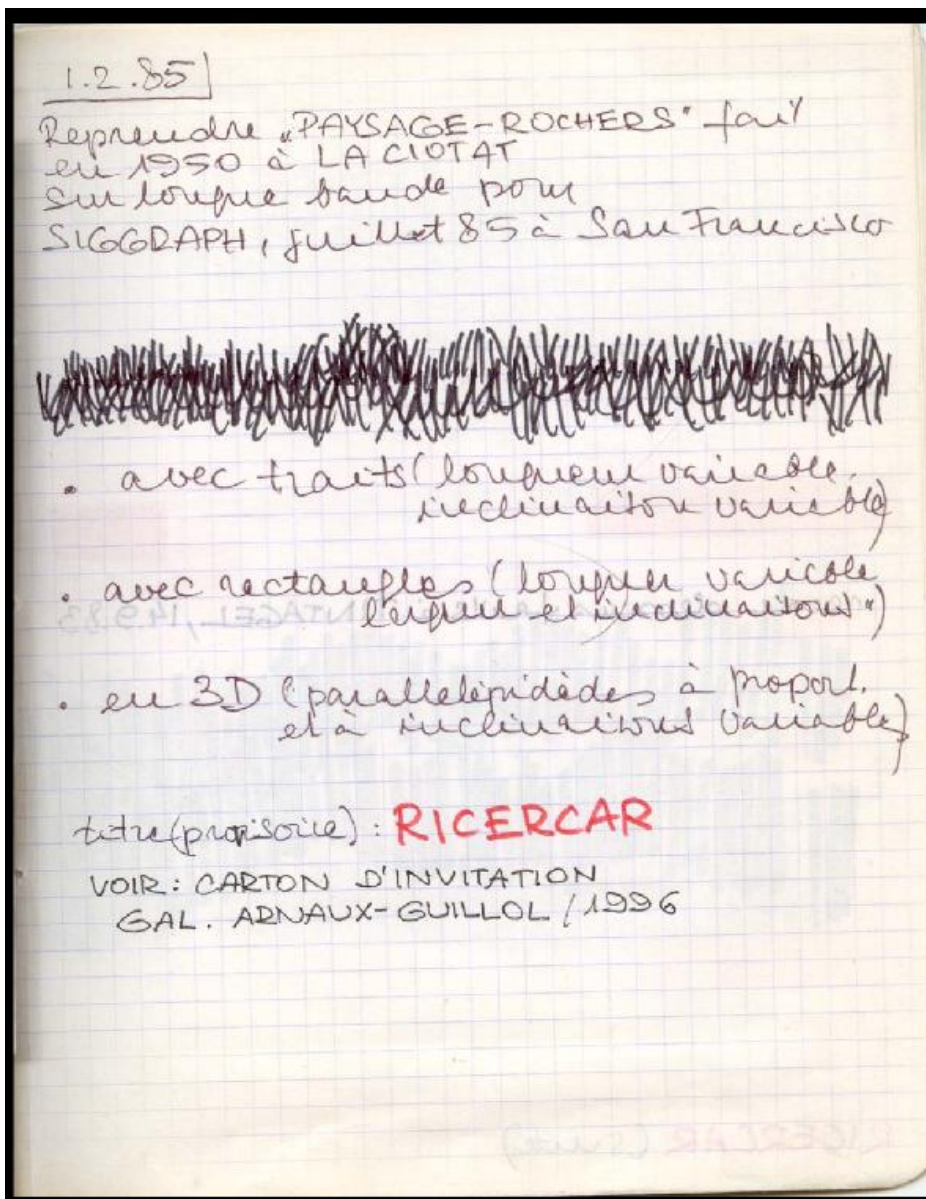 1.2.85
Reprendre „PAYSAGE-ROCHERS" fait
en 1950 à LA CIOTAT
sur longue bande pour
SIGGRAPH, juillet 85 à San Francisco
• avec traits (longueur variable,
inclinaison variable)
• avec rectangles (longueur variable
largeur et inclinaisons ")
• en 3D (parallelépidèdes à proport.
et à inclinaisons variable)
titre (provisoire) : RICERCAR
VOIR : CARTON D'INVITATION
GAL. ARNAUX-GUILLOL / 1996
RICERCAR (suite)